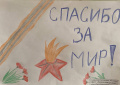 СПАСИБО
ЗА
МИР!